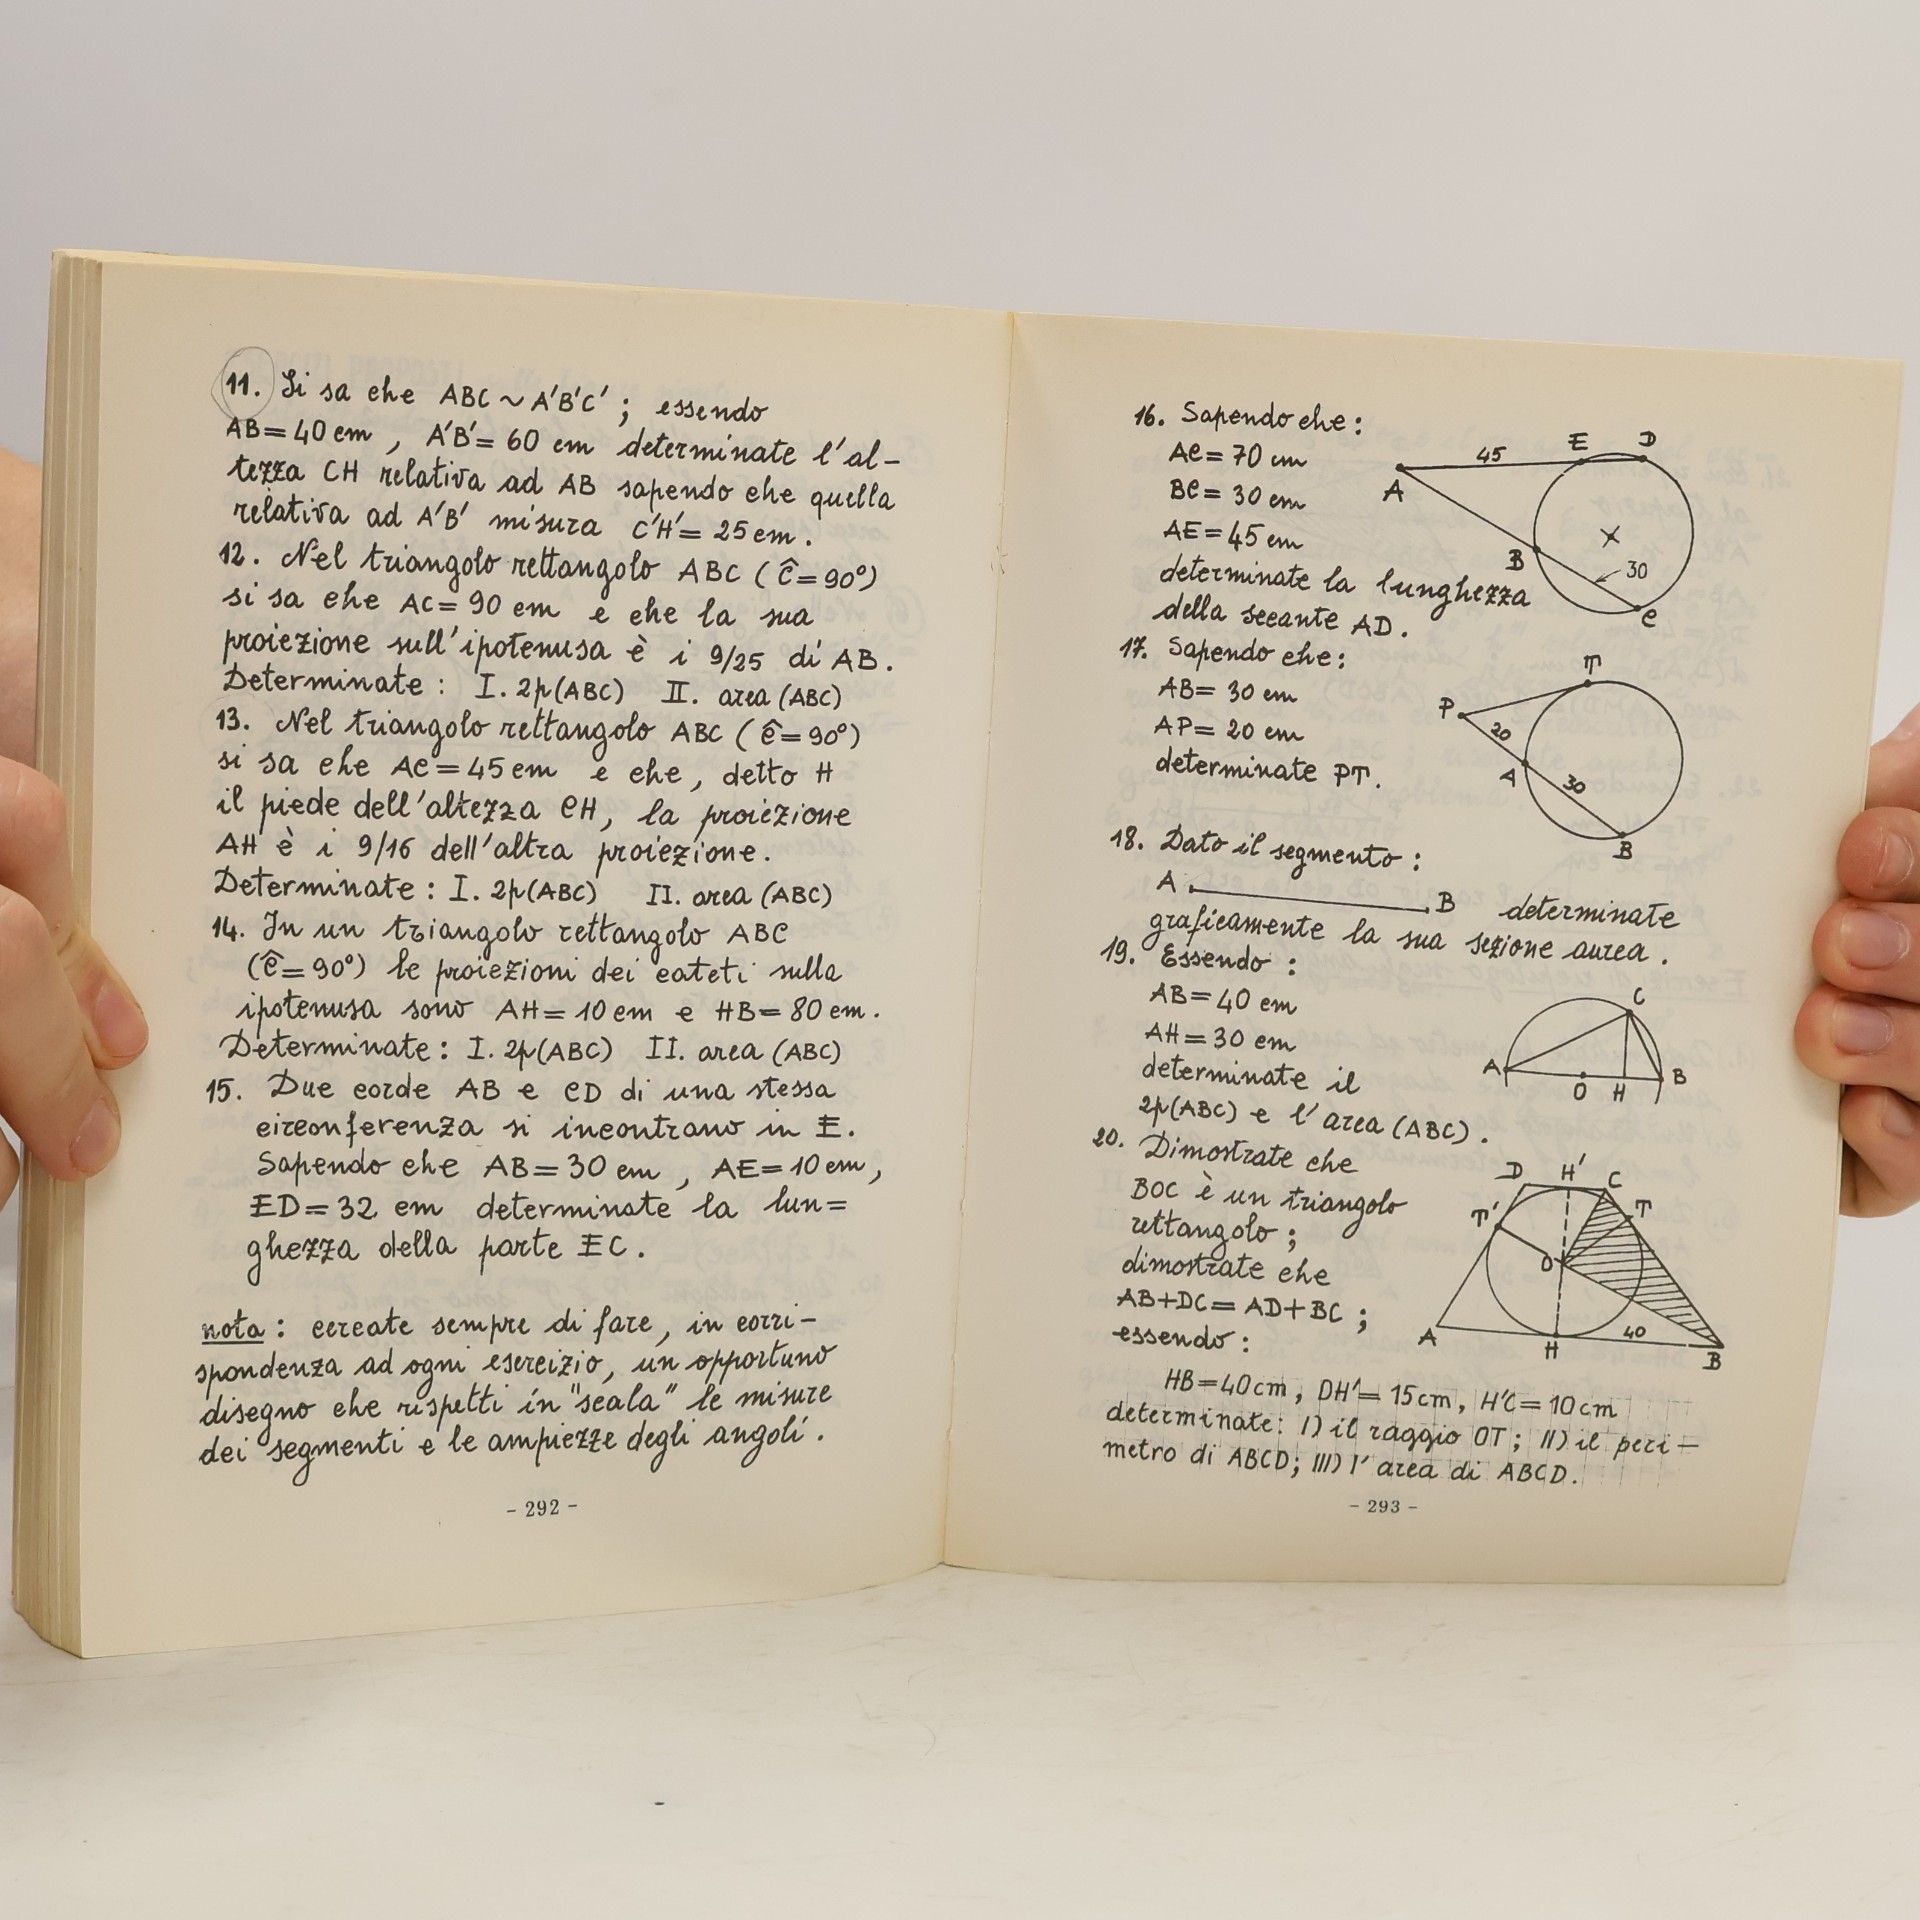 11. Si sa che ABC ~ A'B'C' ; essendo
AB = 40 cm , A'B' = 60 cm determinate l'al-
tezza CH relativa ad AB sapendo che quella
relativa ad A'B' misura C'H' = 25 cm .
12. Nel triangolo rettangolo ABC ( Ĉ = 90°)
si sa che AC = 90 cm e che la sua
proiezione sull'ipotenusa è i 9/25 di AB .
Determinate : I. 2p(ABC) II. area (ABC)
13. Nel triangolo rettangolo ABC ( Ĉ = 90°)
si sa che AC = 45 cm e che , detto H
il piede dell'altezza CH, la proiezione
AH è i 9/16 dell'altra proiezione .
Determinate : I. 2p(ABC) II. area (ABC)
14. In un triangolo rettangolo ABC
(Ĉ = 90°) le proiezioni dei cateti sulla
ipotenusa sono AH = 10 cm e HB = 80 cm .
Determinate : I. 2p(ABC) II. area (ABC)
15. Due corde AB e CD di una stessa
circonferenza si incontrano in E .
Sapendo che AB = 30 cm , AE = 10 cm ,
ED = 32 cm determinate la lun=
ghezza della parte EC .
nota : cercate sempre di fare, in corri-
spondenza ad ogni esercizio, un opportuno
disegno che rispetti in "scala" le misure
dei segmenti e le ampiezze degli angoli .
- 292 -
16. Sapendo che :
AC = 70 cm
BC = 30 cm
AE = 45 cm
determinate la lunghezza
della secante AD .
A 45 E D
B 30 C
17. Sapendo che :
AB = 30 cm
AP = 20 cm
determinate PT .
P T
20 A 30 B
18. Dato il segmento :
A B determinate
graficamente la sua sezione aurea .
19. Essendo :
AB = 40 cm
AH = 30 cm
determinate il
2p(ABC) e l'area (ABC) .
C
A O H B
20. Dimostrate che
BOC è un triangolo
rettangolo ;
dimostrate che
AB + DC = AD + BC ;
essendo :
D H' C
T' T
O
A H 40 B
HB = 40 cm , DH' = 15 cm , H'C = 10 cm
determinate : I) il raggio OT ; II) il peri-
metro di ABCD ; III) l'area di ABCD .
- 293 -